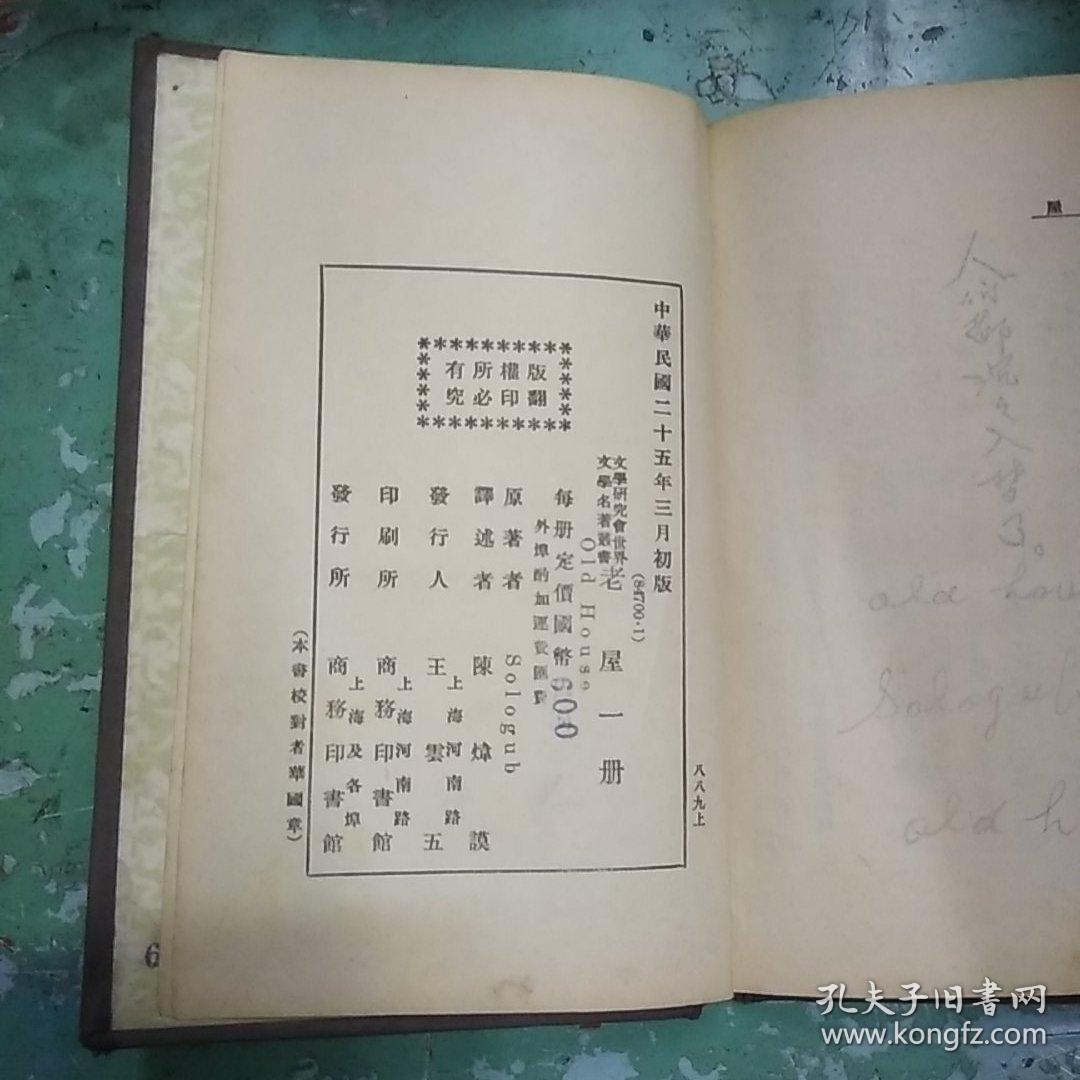 中華民國二十五年三月初版
(84700·1)
文學研究會世界
文學名著叢書
老屋一册
Old House
每册定價國幣600
外埠酌加運費匯費
版權所有
翻印必究
原著者 Sologub
譯述者 陳煒謨
發行人 王雲五
上海河南路
印刷所 商務印書館
上海河南路
發行所 商務印書館
上海及各埠
(本書校對者華國章)
八八九上
屋
old hou
Sologub
old h
6
孔夫子旧书网
www.kongfz.com